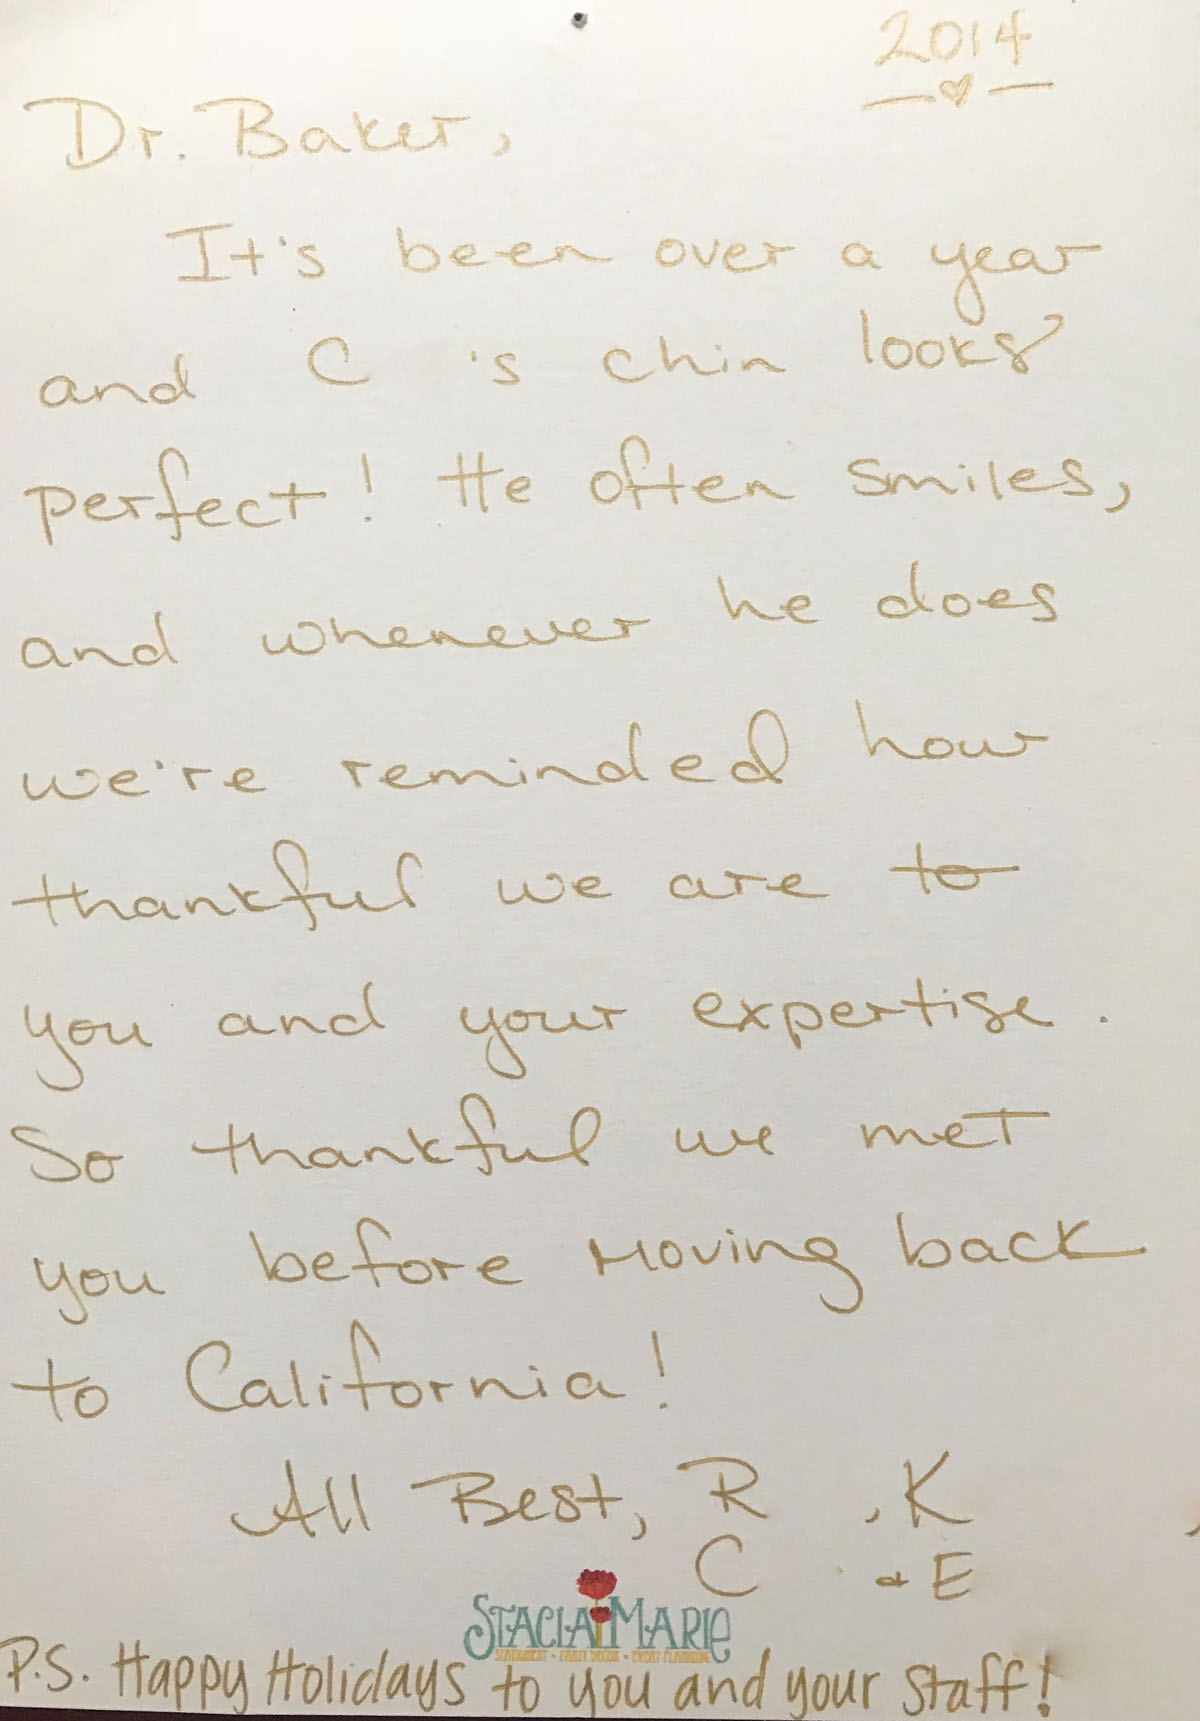 2014
Dr. Baker,
It's been over a year
and C 's chin looks
perfect! He often smiles,
and whenever he does
we're reminded how
thankful we are to
you and your expertise.
So thankful we met
you before moving back
to California!
All Best, R , K ,
C & E
STACIA MARIE
STATIONERY • PARTY DECOR • EVENT PLANNING
P.S. Happy Holidays to you and your staff!